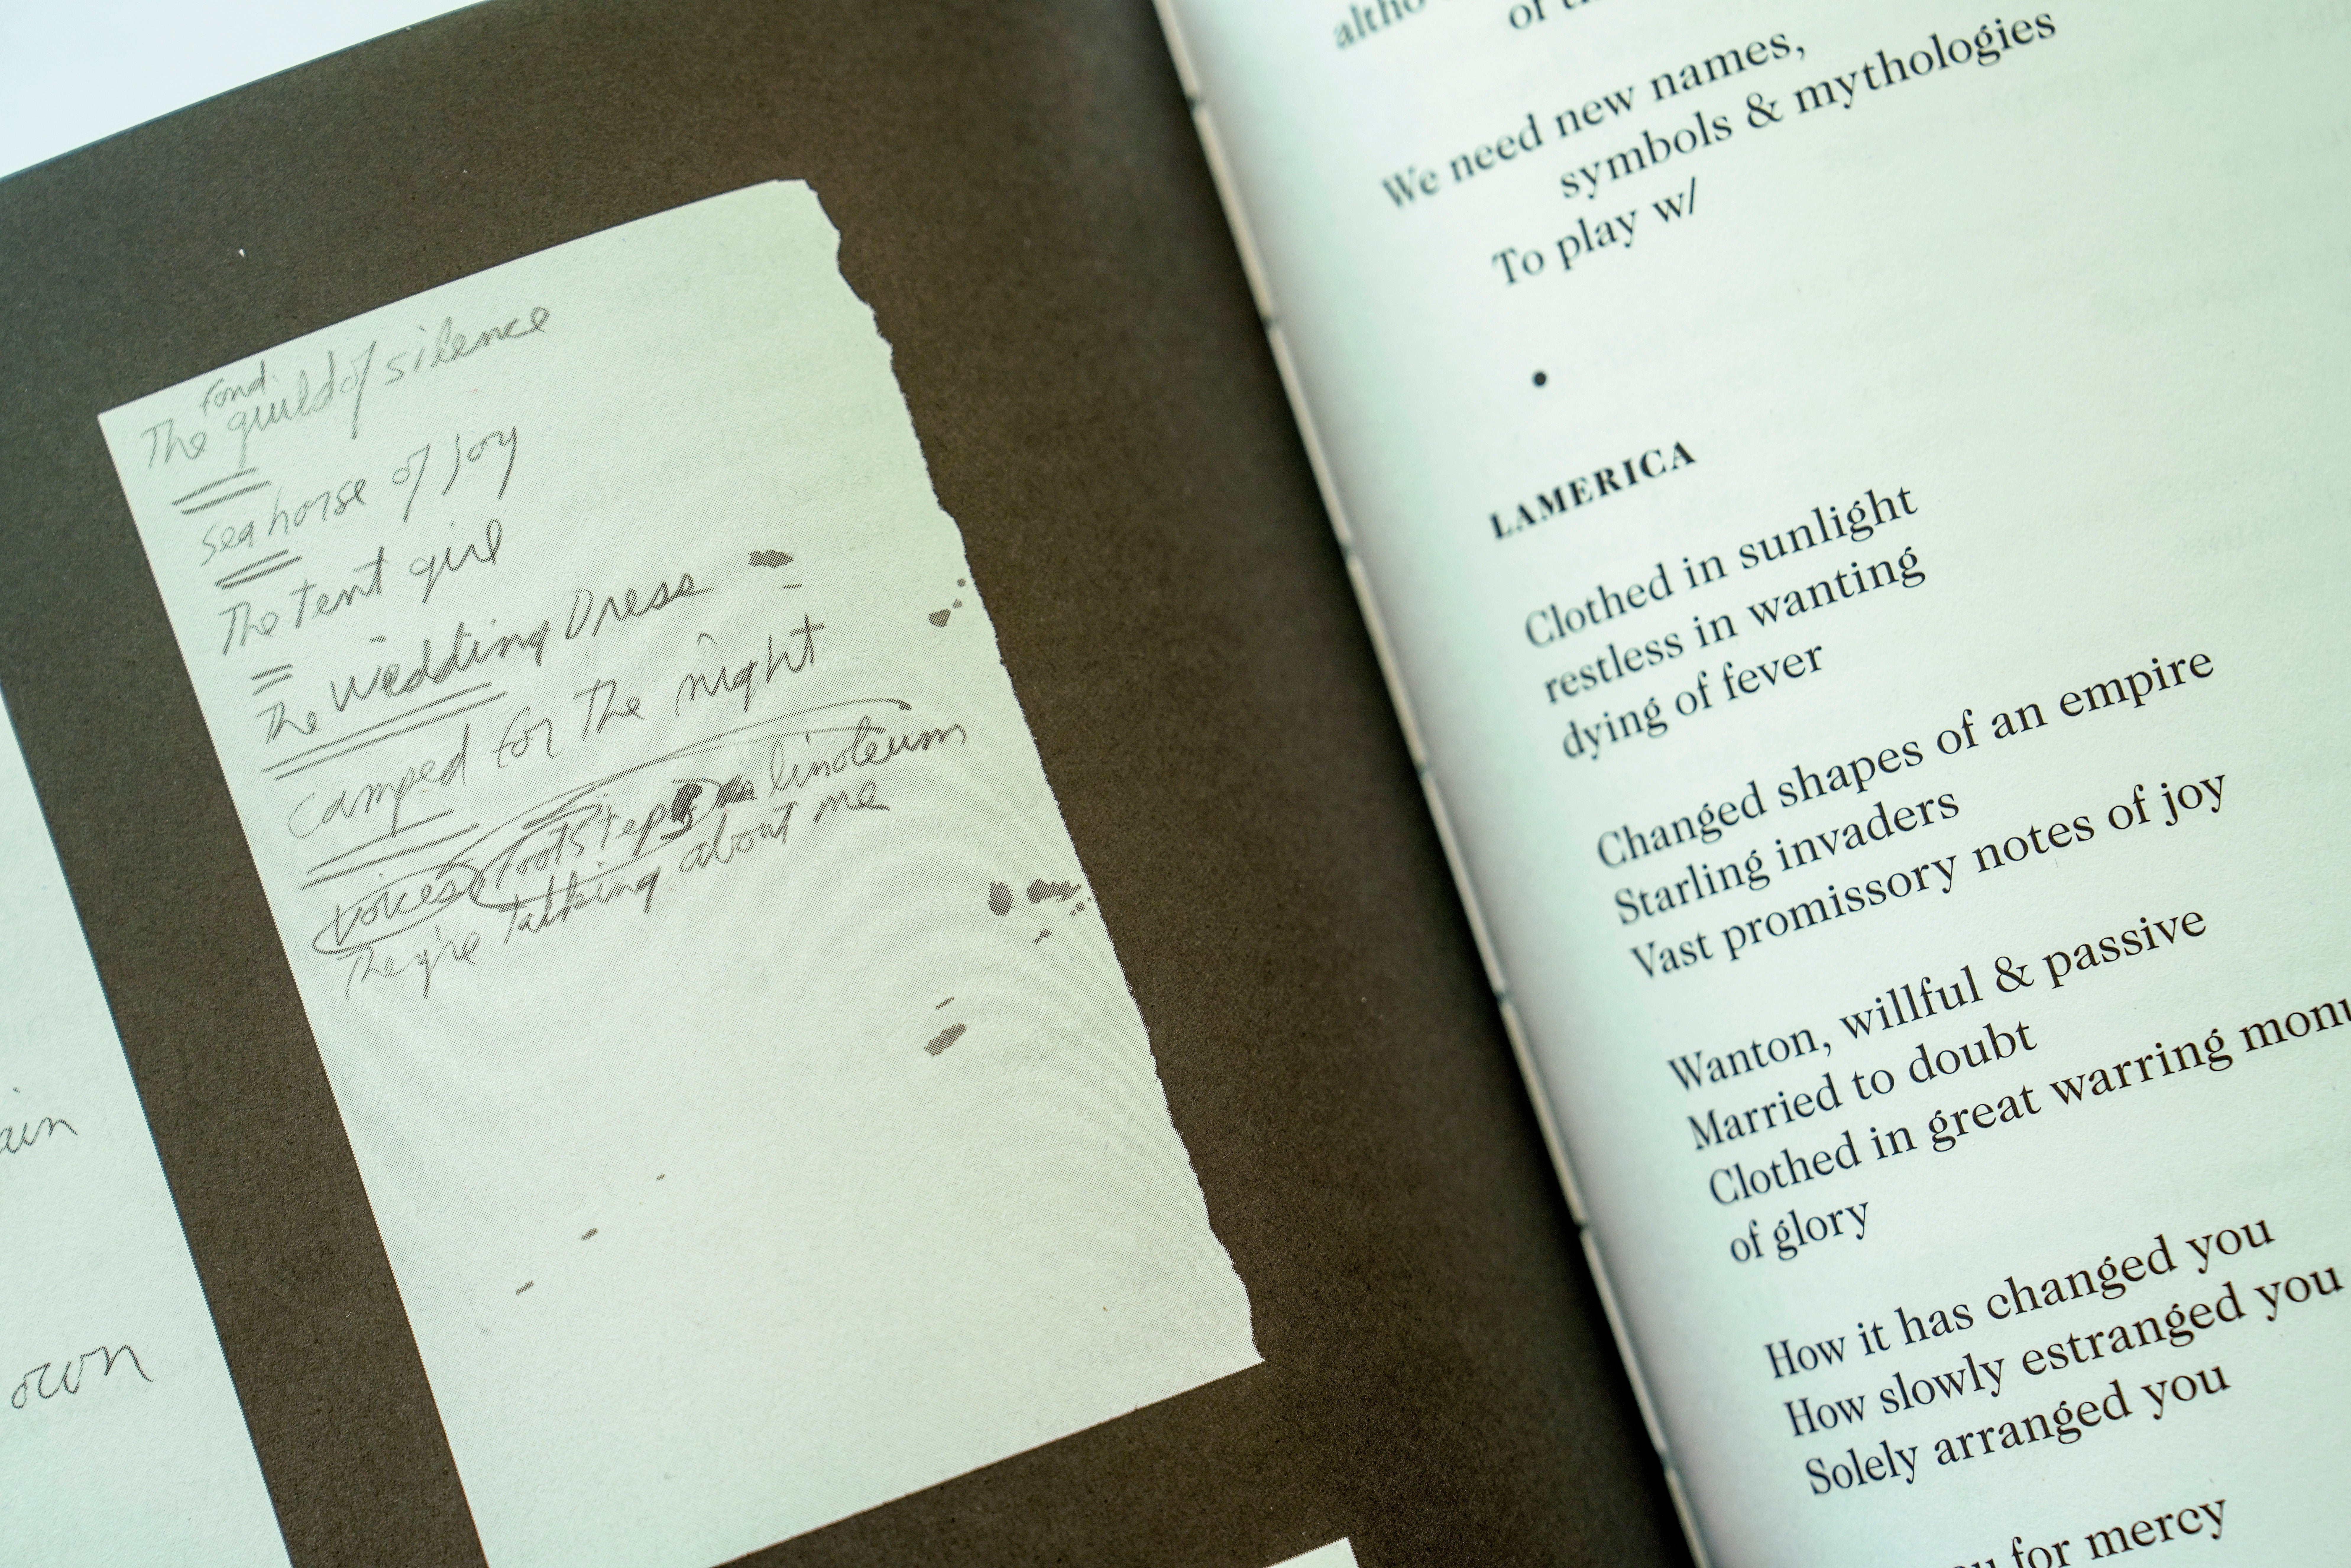 fond
The guild of silence
seahorse of joy
The tent girl
The wedding Dress
camped for the night
voices footsteps linoleum
They're talking about me
ain
own
altho
of
We need new names,
symbols & mythologies
To play w/
•
LAMERICA
Clothed in sunlight
restless in wanting
dying of fever
Changed shapes of an empire
Starling invaders
Vast promissory notes of joy
Wanton, willful & passive
Married to doubt
Clothed in great warring monu
of glory
How it has changed you
How slowly estranged you
Solely arranged you
for mercy